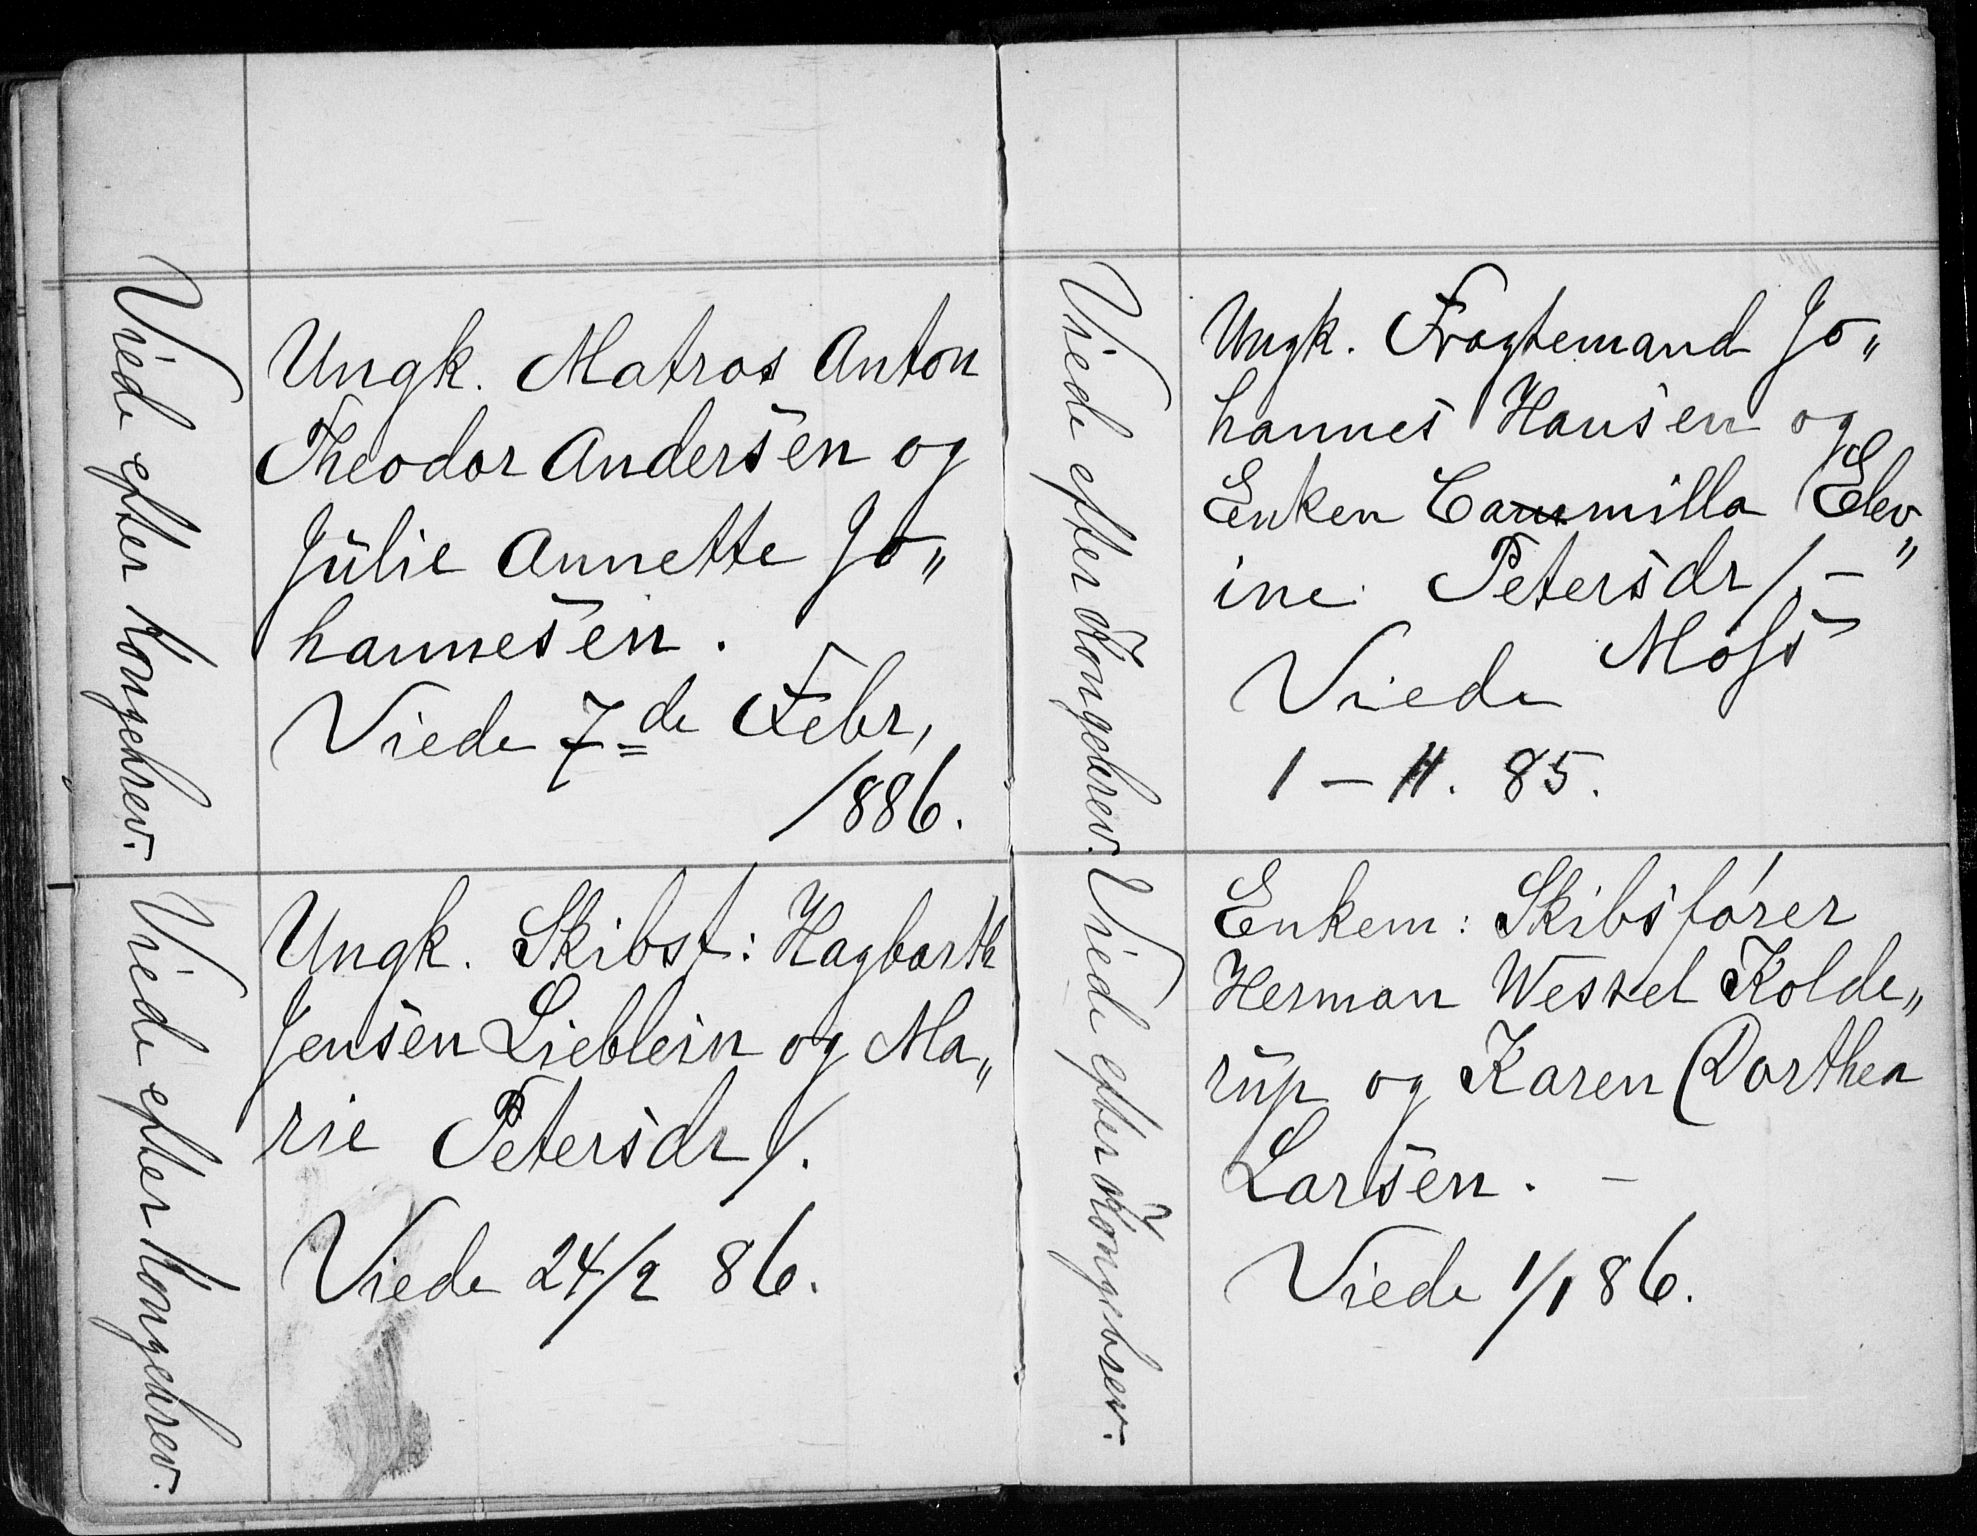 Viede efter Kongebrev.
Ungk. Matros Anton
Theodor Andersen og
Julie Annette Jo„
hannesen.
Viede 7de Febr,
1886.
Viede efter Kongebrev.
Ungk. Skibst: Hagbarth
Jensen Lieblein og Ma„
rie Petersdr /.
Viede 24/2 86.
Viede efter Kongebrev.
Ungk. Fragtemand Jo„
hannes Hansen og
Enken Cammilla Elev„
ine Petersdr /. —
Moss
Viede
1 – 11. 85.
Viede efter Kongebrev.
Enkem: Skibsfører
Herman Wessel Kolde„
rup og Karen Dorthea
Larsen. —
Viede 1/1 86.